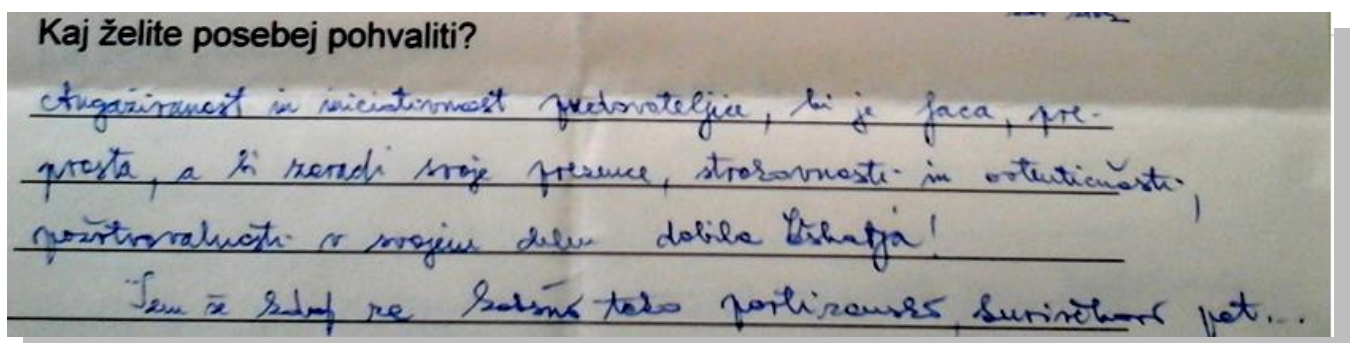 Kaj želite posebej pohvaliti?
Angažiranost in iniciativnost predavateljice, ki je faca, pre-
prosta, a ki zaradi svoje presence, strokovnosti in avtentičnosti,
požrtvovalnosti v svojem delu dobila
Sem že kdaj za kakšno tako partizansko, pot...